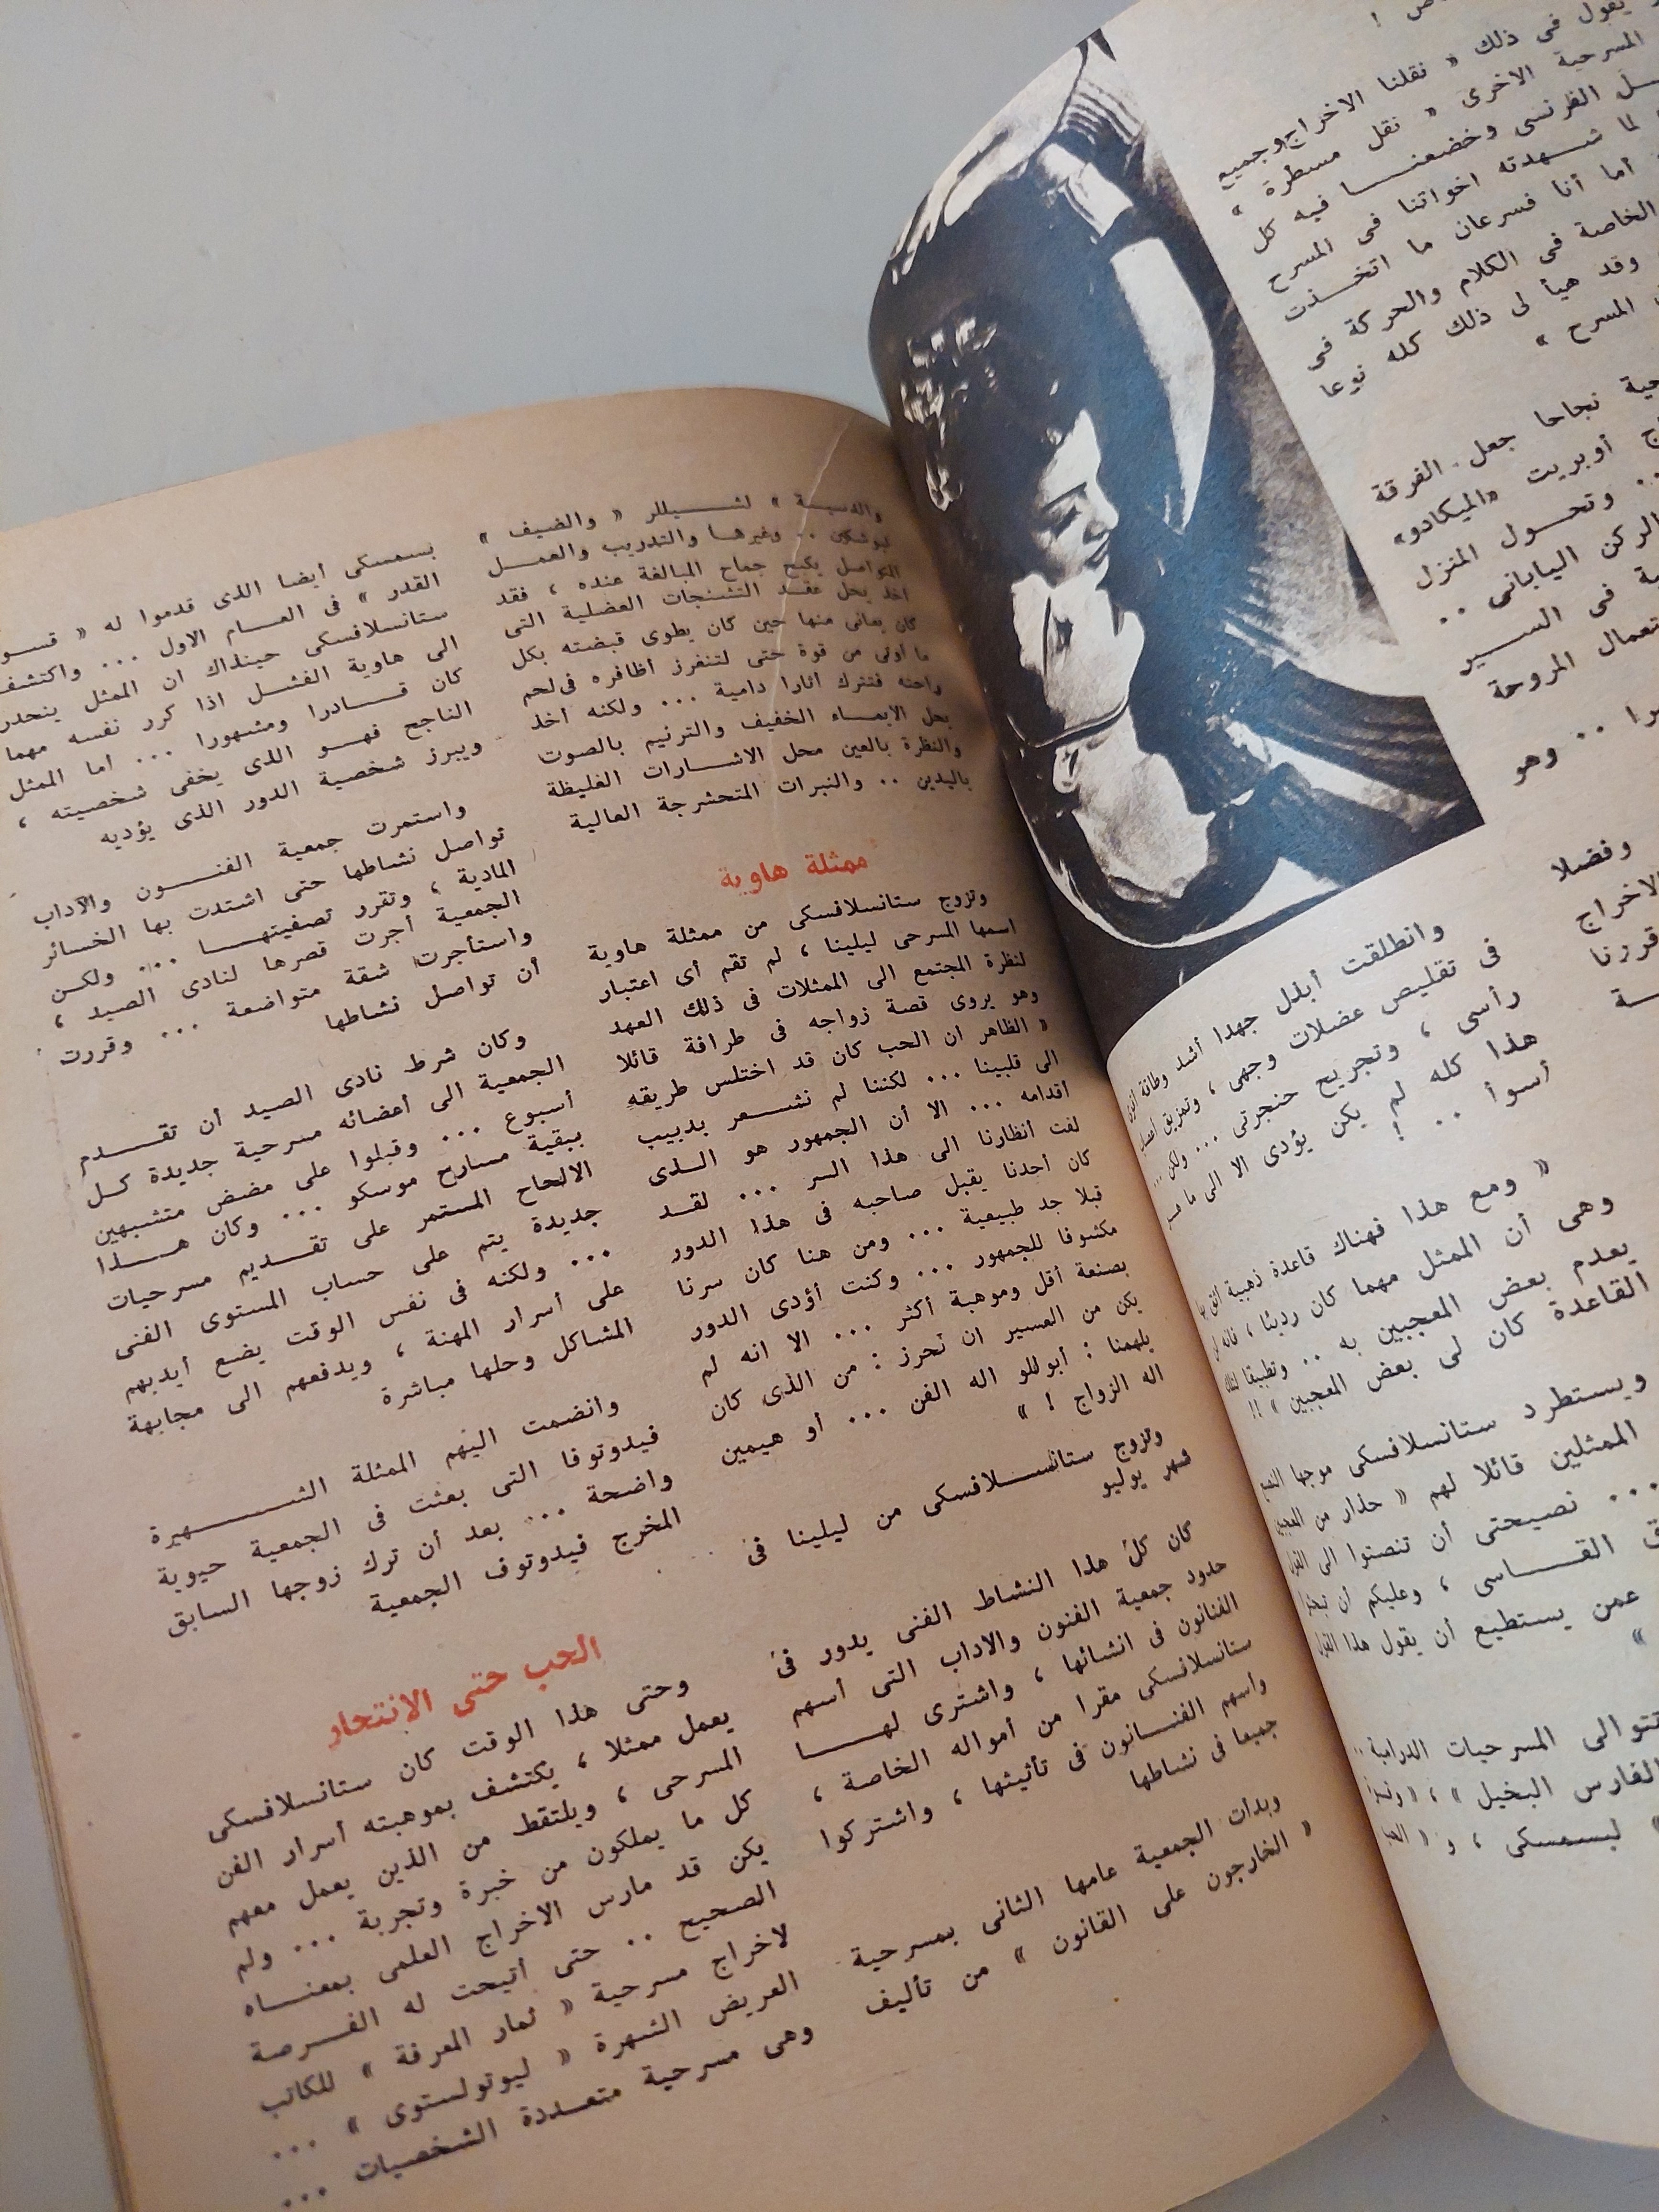 يقول فى ذلك « نقلنا الاخراج وجميع
المسرحية الاخرى « نقل مسطرة »
الفرنسى وخضعنا فيه كل
لما شهدته اخواتنا فى المسرح
أما أنا فسرعان ما اتخذت
الخاصة فى الكلام والحركة فى
وقد هيأ لى ذلك كله نوعا
المسرح »
نجاحا جعل الفرقة
أوبريت «الميكادو»
.. وتحول المنزل
الركن اليابانى ..
فى السير
المروحة
.. وهو
وفضلا
الاخراج
قررنا
وانطلقت أبذل جهدا أشد وطأة
فى تقليص عضلات وجهى ، وتمزيق
رأسى ، وتجريح حنجرتى ... ولكن ...
هذا كله لم يكن يؤدى الا الى ما هو
أسوأ .. !
« ومع هذا فهناك قاعدة ذهبية
وهى أن الممثل مهما كان رديئا ، فانه لن
يعدم بعض المعجبين به .. وتطبيقا لتلك
القاعدة كان لى بعض المعجبين » !!
ويستطرد ستانسلافسكى موجها
الممثلين قائلا لهم « حذار من
... نصيحتى أن تنصتوا الى
القاسى ، وعليكم أن
عمن يستطيع أن يقول هذا
»
تتوالى المسرحيات الدرامية ..
الفارس البخيل » ،
» لبسمسكى ، و «
والدسيسة » لشيللر « والضيف »
لبوشكين .. وغيرها والتدريب والعمل
المتواصل يكبح جماح المبالغة عنده ، فقد
اخذ يحل عقد التشنجات العضلية التى
كان يعانى منها حين كان يطوى قبضته بكل
ما أوتى من قوة حتى لتنغرز أظافره فى لحم
راحته فتترك آثارا دامية ... ولكنه اخذ
يحل الايماء الخفيف والترنيم بالصوت
والنظرة بالعين محل الاشارات الغليظة
باليدين .. والنبرات المتحشرجة العالية
ممثلة هاوية
وتزوج ستانسلافسكى من ممثلة هاوية
اسمها المسرحى ليلينا ، لم تقم أى اعتبار
لنظرة المجتمع الى الممثلات فى ذلك العهد
وهو يروى قصة زواجه فى طرافة قائلا
« الظاهر ان الحب كان قد اختلس طريقه
الى قلبينا ... لكننا لم نشعر بدبيب
أقدامه ... الا أن الجمهور هو الذى
لفت أنظارنا الى هذا السر ... لقد
كان أحدنا يقبل صاحبه فى هذا الدور
قبلا جد طبيعية ... ومن هنا كان سرنا
مكشوفا للجمهور ... وكنت أؤدى الدور
بصنعة أقل وموهبة أكثر ... الا انه لم
يكن من العسير ان نحرز : من الذى كان
يلهمنا : أبوللو اله الفن ... أو هيمين
اله الزواج ! »
وتزوج ستانسلافسكى من ليلينا فى
شهر يوليو
كان كل هذا النشاط الفنى يدور فى
حدود جمعية الفنون والاداب التى أسهم
الفنانون فى انشائها ، واشترى لها
ستانسلافسكى مقرا من أمواله الخاصة ،
واسهم الفنانون فى تأثيثها ، واشتركوا
جميعا فى نشاطها
وبدات الجمعية عامها الثانى بمسرحية
« الخارجون على القانون » من تأليف
بسمسكى أيضا الذى قدموا له « قسوة
القدر » فى العام الاول ... واكتشف
ستانسلافسكى حينذاك ان الممثل ينحدر
الى هاوية الفشل اذا كرر نفسه مهما
كان قادرا ومشهورا ... اما الممثل
الناجح فهو الذى يخفى شخصيته ،
ويبرز شخصية الدور الذى يؤديه
واستمرت جمعية الفنون والآداب
تواصل نشاطها حتى اشتدت بها الخسائر
المادية ، وتقرر تصفيتها ... ولكن
الجمعية أجرت قصرها لنادى الصيد ،
واستأجرت شقة متواضعة ... وقررت
أن تواصل نشاطها
وكان شرط نادى الصيد أن تقدم
الجمعية الى أعضائه مسرحية جديدة كل
أسبوع ... وقبلوا على مضض متشبهين
ببقية مسارح موسكو ... وكان هذا
الالحاح المستمر على تقديم مسرحيات
جديدة يتم على حساب المستوى الفنى
... ولكنه فى نفس الوقت يضع أيديهم
على أسرار المهنة ، ويدفعهم الى مجابهة
المشاكل وحلها مباشرة
وانضمت اليهم الممثلة الشهيرة
فيدوتوفا التى بعثت فى الجمعية حيوية
واضحة ... بعد أن ترك زوجها السابق
المخرج فيدوتوف الجمعية
الحب حتى الانتحار
وحتى هذا الوقت كان ستانسلافسكى
يعمل ممثلا ، يكتشف بموهبته أسرار الفن
المسرحى ، ويلتقط من الذين يعمل معهم
كل ما يملكون من خبرة وتجربة ... ولم
يكن قد مارس الاخراج العلمى بمعناه
الصحيح .. حتى أتيحت له الفرصة
لاخراج مسرحية « ثمار المعرفة » للكاتب
العريض الشهرة « ليوتولستوى » ...
وهى مسرحية متعددة الشخصيات ...